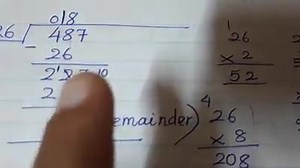 018
26 487
- 26
2
emainder)
1
26
x 2
52
4
26
x 8
208